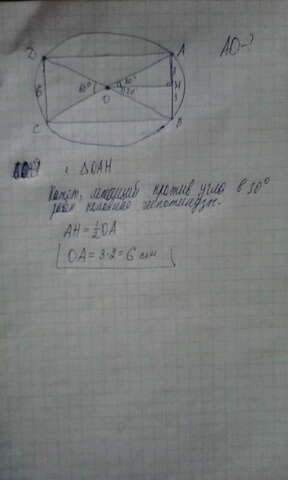 AO-?
D
A
6
60°
30°
30°
3
H
O
3
C
B
△OAH
Катет, лежащий против угла в 30°
равен половине гипотенузы.
AH = ½OA
OA = 3·2 = 6 см